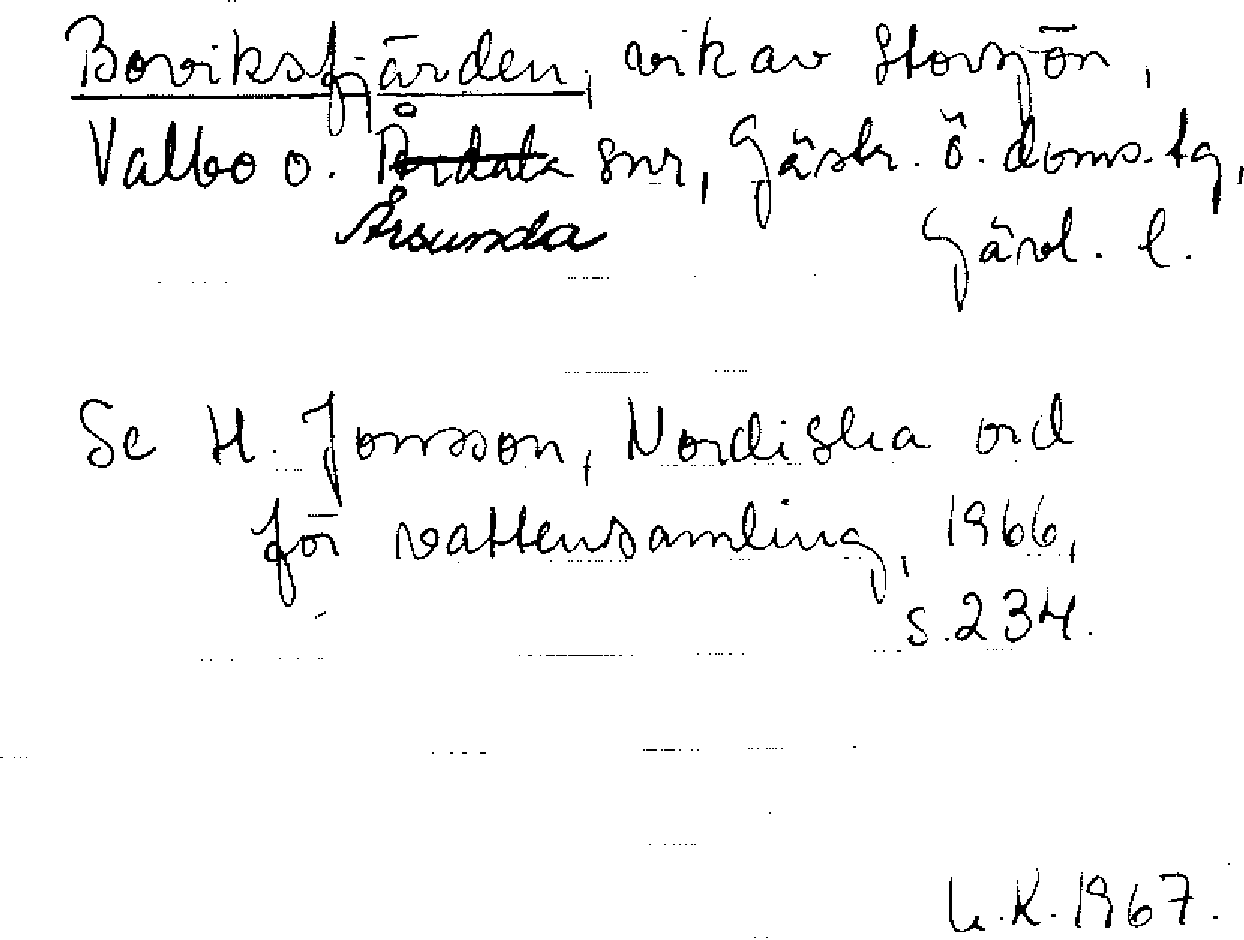 Boviksfjärden, vik av Storsjön,
Valbo o. snr, Gästr. ö. doms.tg,
Årsunda Gävl. l.
Se H. Jonsson, Nordiska ord
för vattensamling, 1966,
s. 234.
L.K. 1967.